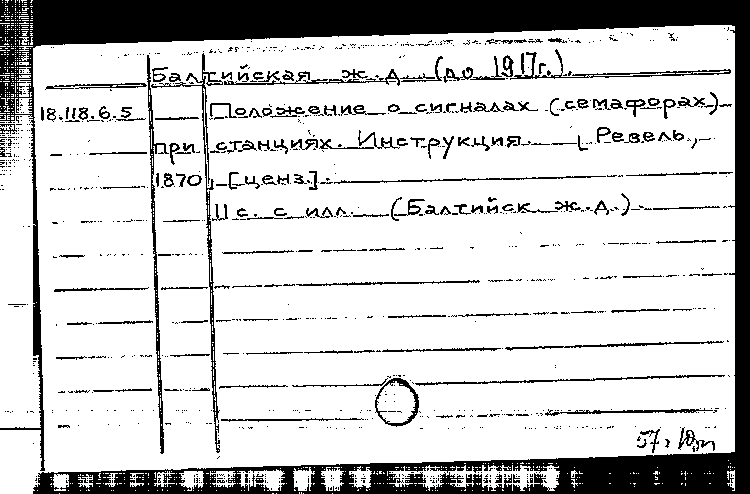 Балтийская ж.д. (до 1917г.).
18.118.6.5 Положение о сигналах (семафорах)
при станциях. Инструкция. [Ревель,
1870, [ценз.].
11 с. с илл. (Балтийск. ж.д.).
57г.